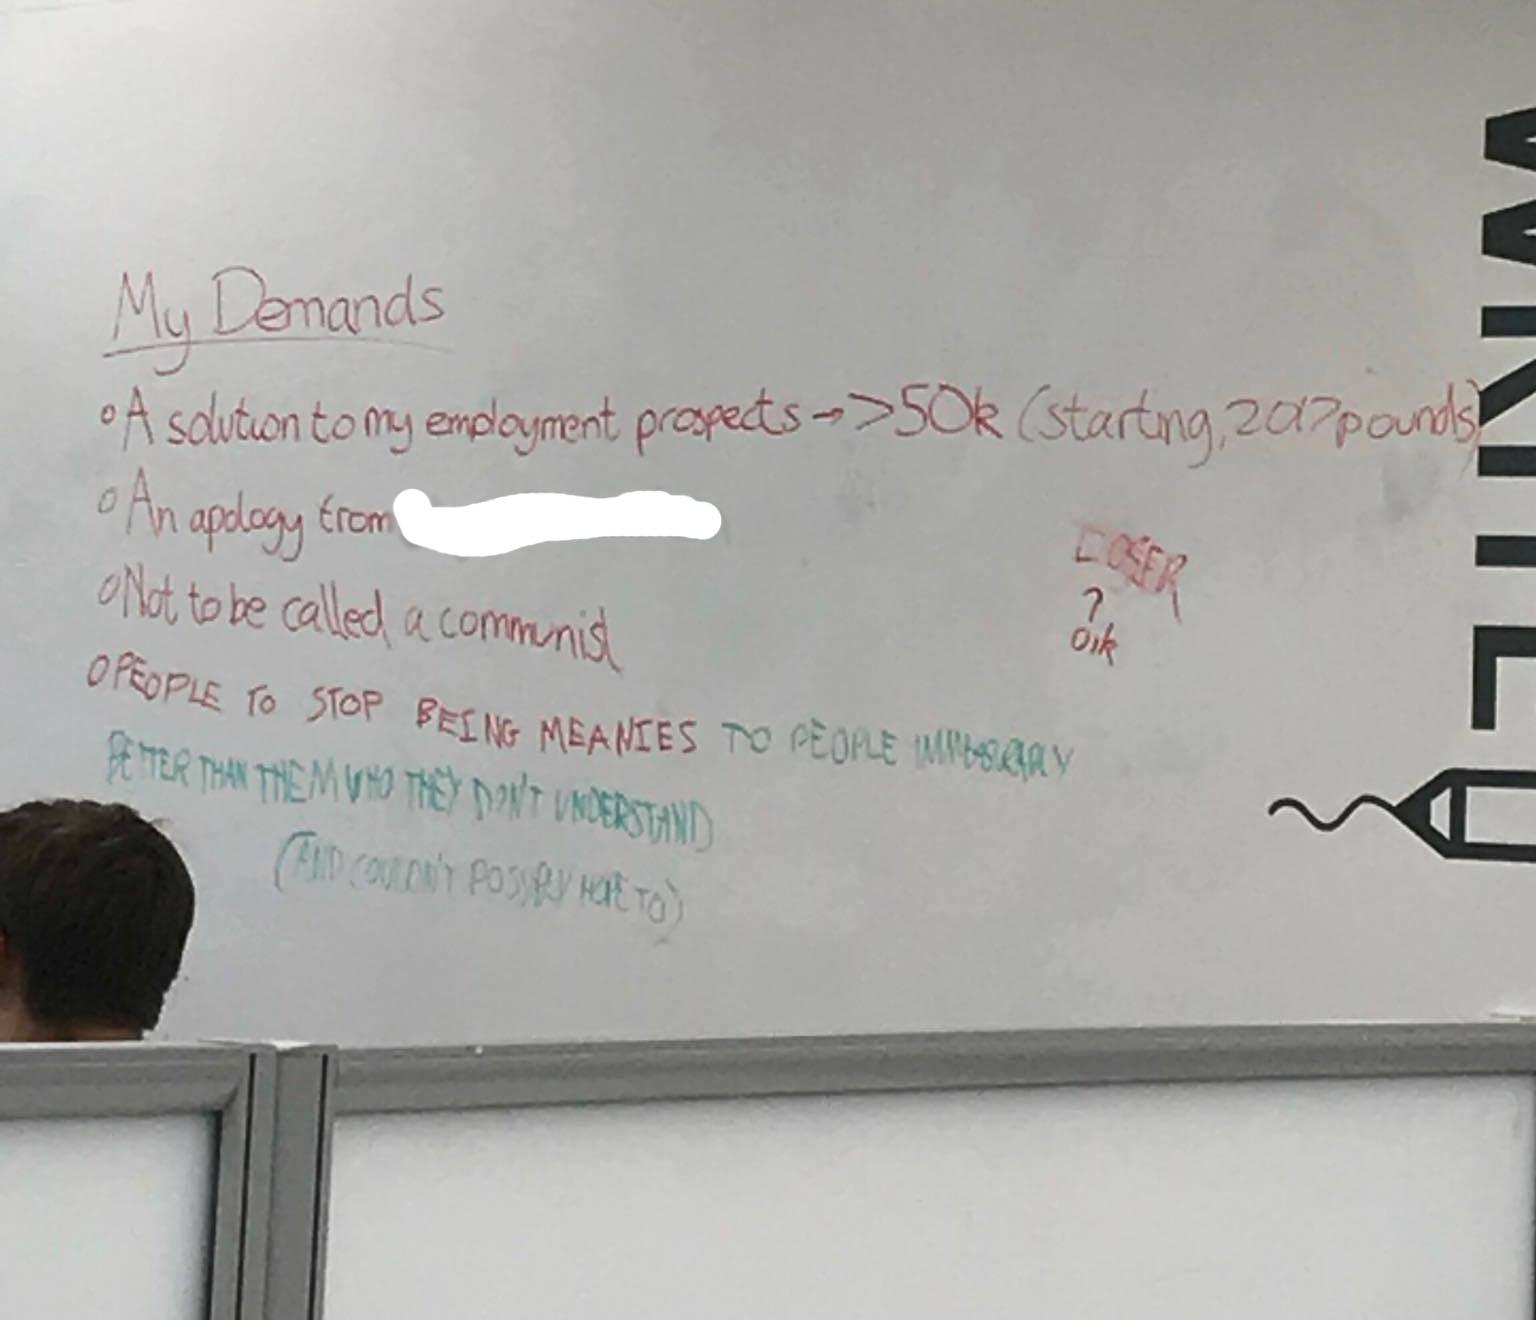 My Demands
A solution to my employment prospects → >50k (starting, 2017 pounds)
An apology from
Not to be called a communist
PEOPLE TO STOP BEING MEANIES TO PEOPLE
BETTER THAN THEM WHO THEY DON'T UNDERSTAND
(AND COULDN'T POSSIBLY HOPE TO)
LOSER
?
Oik
WRITE